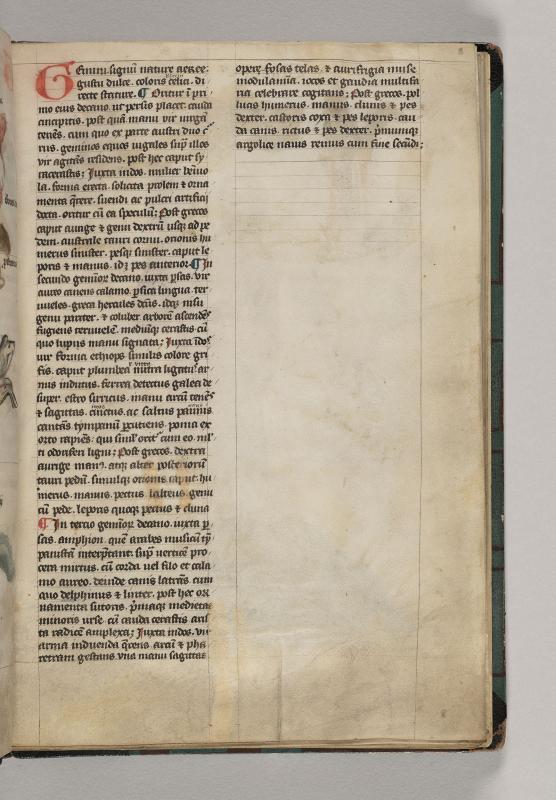 Geminu signū nature aereę:
gustu dulce. coloris celici. di
recte stature. ¶ Oritur ī pri
mo eius decano. ut persius placet: cauda
cancipitis. post quā manu vir uirgā
tenēs. cum quo ex parte austri duo c
rus. geminos equos uigales suꝑ illos
vir agitās residens. post hec caput
Juxta indos. mulier
la. forma erecta. solicita prolem ⁊ orna
menta q̄rere. suendi ac pulcri artificij
docta. oritur cū ea speculū: Post grecos
caput aurige ⁊ genu dextrū usq; ad pe
dem. australe tauri cornu. orionis hu
merus sinister. pesq; sinister. caput le
poris ⁊ manus. idq; pes anterior. ¶ In
secundo geminoꝝ decano. iuxta ꝑsas. vir
aureo canens calamo. ꝑsica lingua. ter
uueles. greca hercules dcūs. idq; nisu
genu pariter. ⁊ coluber arborē ascendēs
fugiens teruuelē. mediūq; cerastis cū
quo lupus manu signata; Juxta īdos
uir forma ethiops similis colore gri
seis. caput plumbea mitra ligatus ar
mis indutus. ferrea detectus galea de
super. estro sirricus. manu arcū tenēs
⁊ sagittas. ac saltus
cantās tympanū ꝑcutiens. poma ex
orto rapiēs: qui simul orit cum eo. ml
ti odoriferi ligni; Post grecos. dextra
aurige manus. atq; alter posteriorū
tauri pedū. simulq; orionis caput. hu
merus. manus. pectus. balteus. genu
cū pede. leporis quoq; pectus ⁊ cluna
¶ In tercio geminoꝝ decano. iuxta ꝑ
sas. amphion. quē arabes musicū tȳ
panistā interp̄tant. suꝑ verticē pro
cera mirtus. cū corda uel filo et cala
mo aureo. deinde canis latrās cum
quo delphinus ⁊ linter. post hec or
namenta sutoris. p̄maq; medietas
minoris urse. cū cauda cerastis
ta radice amplexa; Juxta indos. vir
arma induenda q̄rens. arcū ⁊ pha
retram gestans. una manu sagittas
opere fosas telas. ⁊ aurifrigia muse
modulamīa. iocos et gaudia multifa
ria celebrare cogitans; Post grecos. pol
lucis humerus. manus. clunis ⁊ pes
dexter. castoris coxa ⁊ pes leporis. cau
da canis. rictus ⁊ pes dexter. p̄mumq;
argolice nauis remus cum fine secūdi;